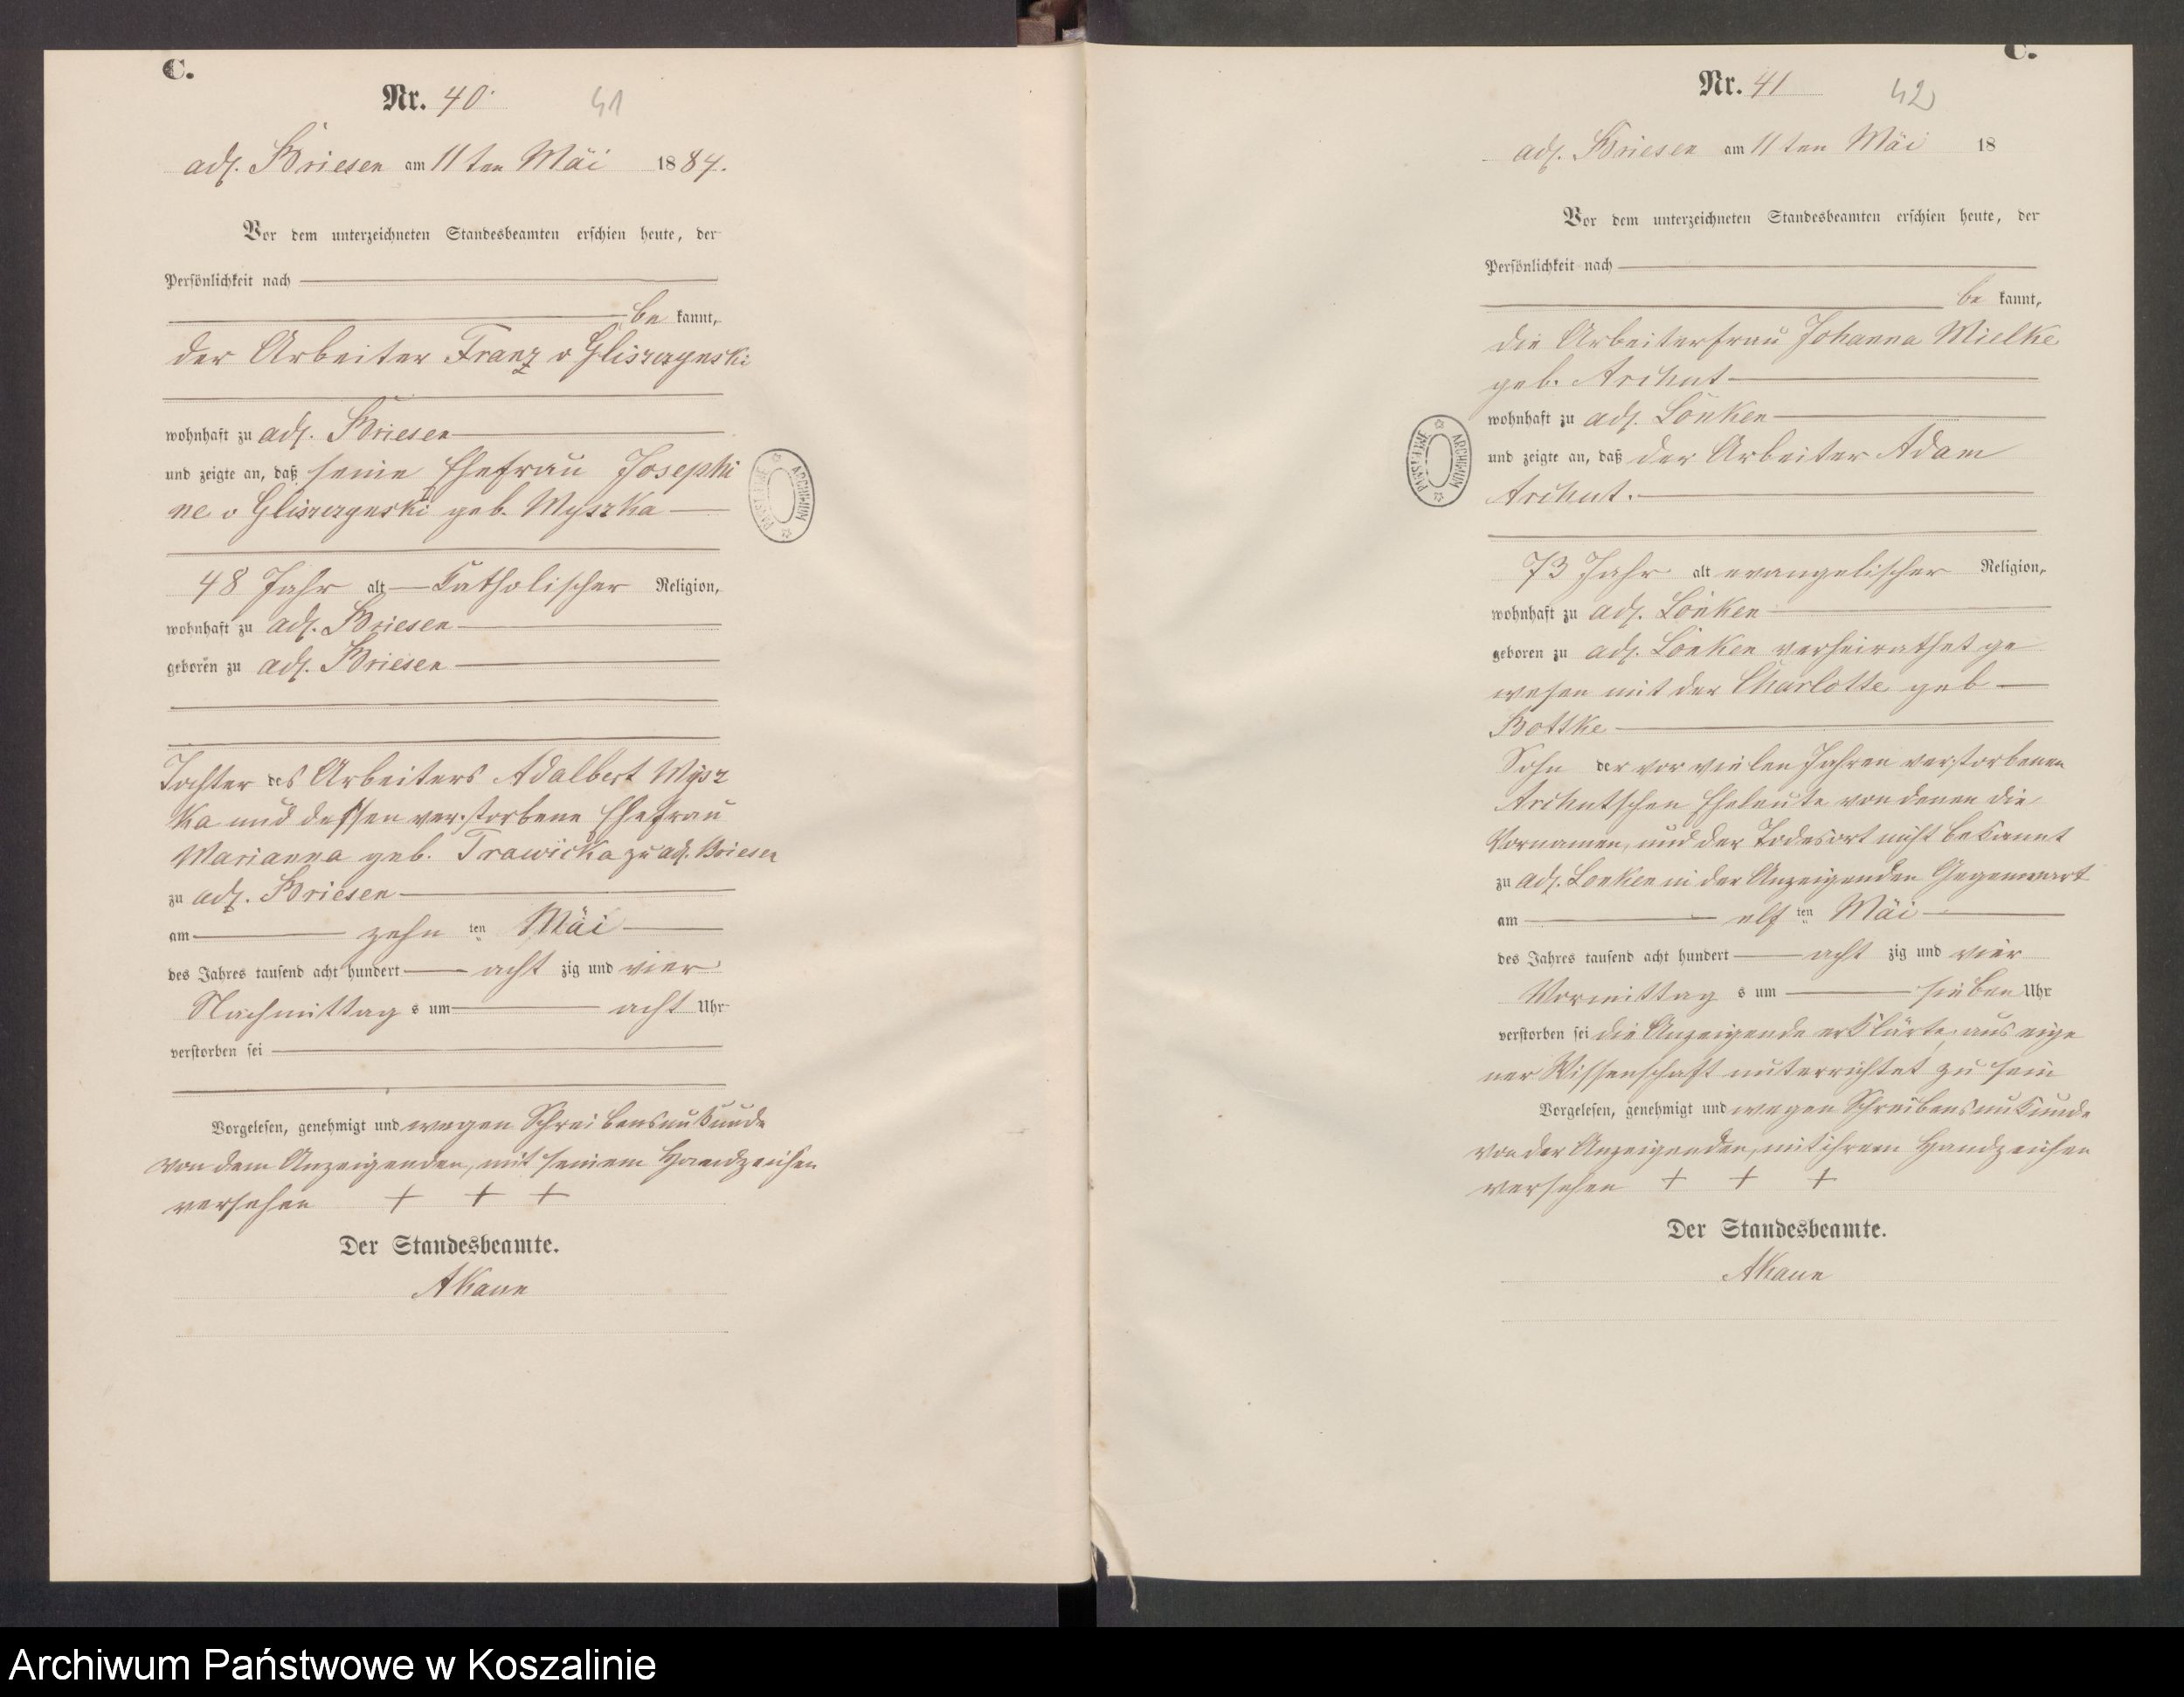 C.
Nr. 40. 41
adl. Briesen am 11ten Mai 1884.
Vor dem unterzeichneten Standesbeamten erschien heute, der
Persönlichkeit nach
be kannt,
der Arbeiter Franz v Gliszczynski
wohnhaft zu adl. Briesen
und zeigte an, daß seine Ehefrau Josephi
ne v Gliszczynski geb. Myszka
48 Jahr alt Katholischer Religion,
wohnhaft zu adl. Briesen
geboren zu adl. Briesen
Tochter des Arbeiters Adalbert Mysz
ka und dessen verstorbene Ehefrau
Marianna geb. Trawicka zu adl. Briesen
zu adl. Briesen
am zehn ten Mai
des Jahres tausend acht hundert acht zig und vier
Nachmittag s um acht Uhr
verstorben sei
Vorgelesen, genehmigt und wegen Schreibensunkunde
von dem Anzeigenden, mit seinem Handzeichen
versehen + + +
Der Standesbeamte.
AKaun
C.
Nr. 41 42
adl. Briesen am 11ten Mai 18
Vor dem unterzeichneten Standesbeamten erschien heute, der
Persönlichkeit nach
be kannt,
die Arbeiterfrau Johanna Mielke
geb. Archut
wohnhaft zu adl. Lonken
und zeigte an, daß der Arbeiter Adam
Archut.
73 Jahr alt evangelischer Religion,
wohnhaft zu adl. Lonken
geboren zu adl. Lonken verheirathet ge
wesen mit der Charlotte geb
Bottke
Sohn der vor vielen Jahren verstorbenen
Archutschen Eheleute von denen die
Vornamen, und der Todesort nicht bekannt
zu adl. Lonken in der Anzeigenden Gegenwart
am elf ten Mai
des Jahres tausend acht hundert acht zig und vier
Vormittag s um sieben Uhr
verstorben sei die Anzeigende erklärte, aus eige
ner Wissenschaft unterrichtet zu sein
Vorgelesen, genehmigt und wegen Schreibensunkunde
von der Anzeigenden, mit ihrem Handzeichen
versehen + + +
Der Standesbeamte.
AKaun
ARCHIWUM PAŃSTWOWE
ARCHIWUM PAŃSTWOWE
Archiwum Państwowe w Koszalinie